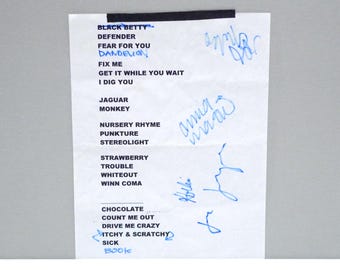 BLACK BETTY
DEFENDER
FEAR FOR YOU
DANDELION
FIX ME
GET IT WHILE YOU WAIT
I DIG YOU
JAGUAR
MONKEY
NURSERY RHYME
PUNKTURE
STEREOLIGHT
STRAWBERRY
TROUBLE
WHITEOUT
WINN COMA
CHOCOLATE
COUNT ME OUT
DRIVE ME CRAZY
ITCHY & SCRATCHY
SICK
BOOIE